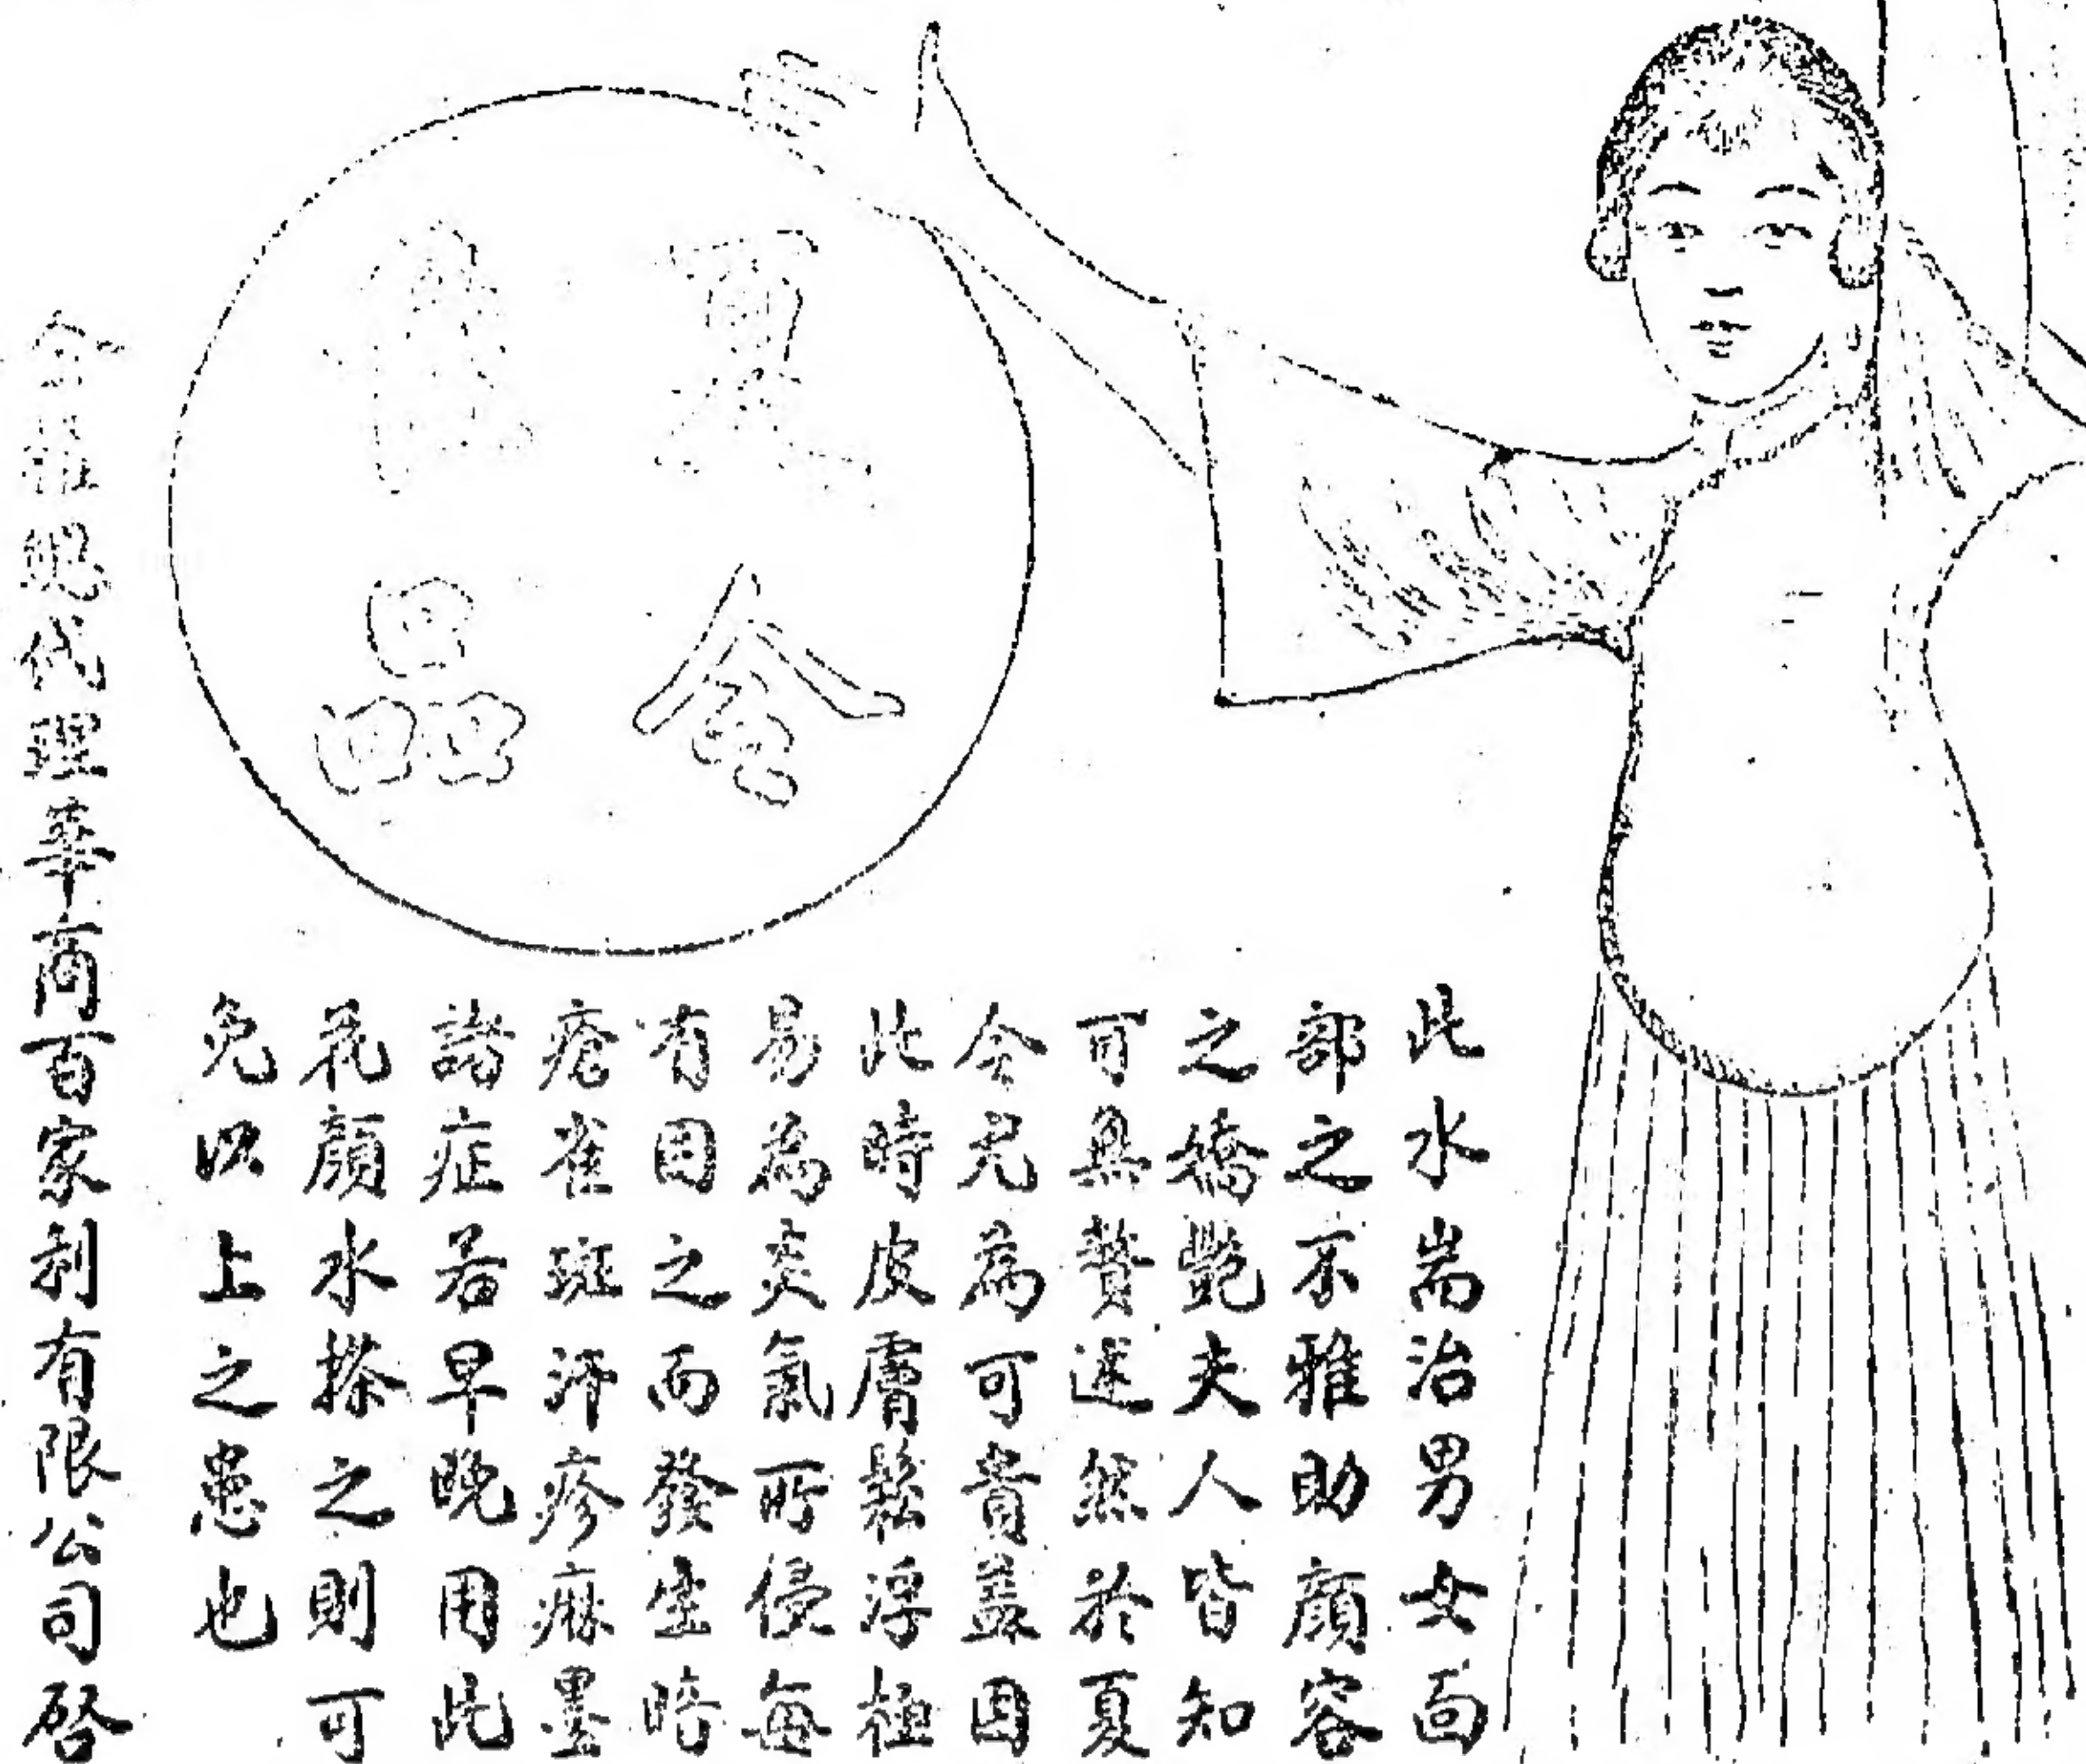 夏令
品
此水耑治男女面
部之不雅助顏容
之嬌艷夫人皆知
可無贅述然於夏
令尤為可貴蓋因
此時皮膚鬆浮極
易為炎氣所侵每
有因之而發生暗
瘡雀斑汗疹痲墨
諸症若早晚用此
花顏水搽之則可
免以上之患也
全雅現代理華商百家利有限公司啓